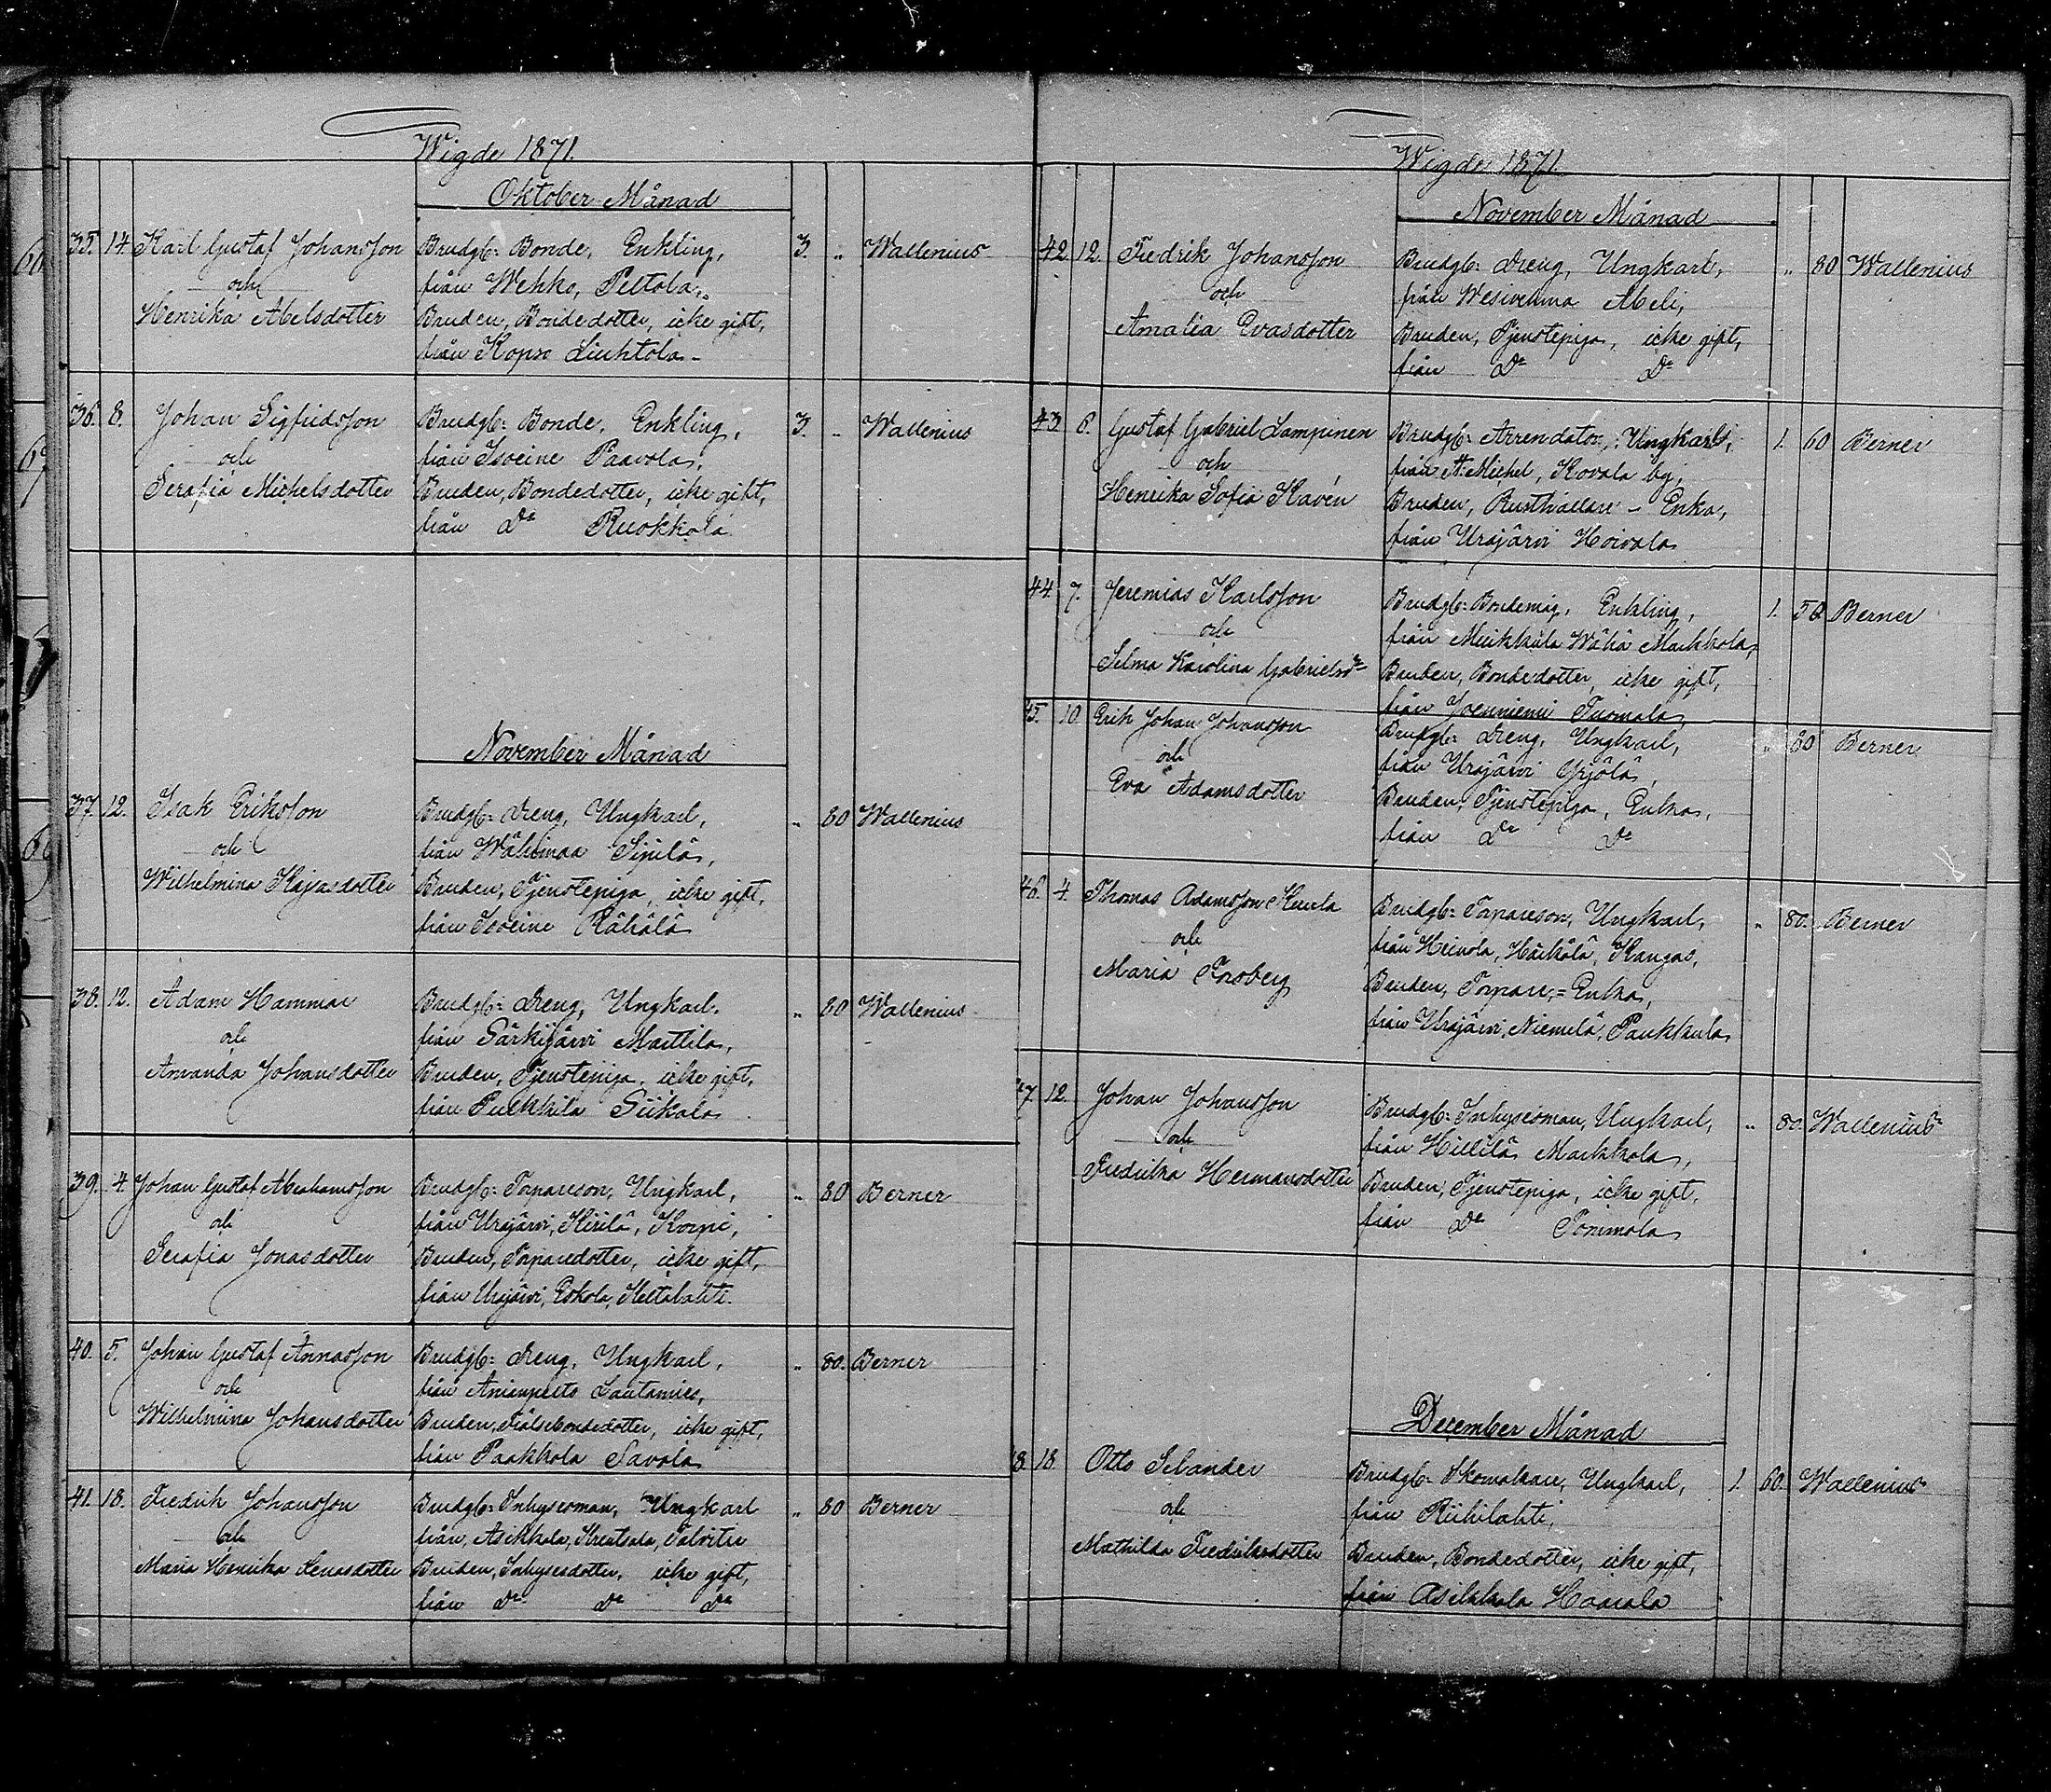 Wigde 1871.
Oktober Månad
35. 14. Karl Gustaf Johansson Brudg: Bonde, Enkling, 3. „ Wallenius
och från Wehko, Peltola,
Henrika Abelsdotter Bruden, Bondedotter, icke gift,
från Kopso Liuhtola
36. 8. Johan Sigfridsson Brudg: Bonde, Enkling, 3. „ Wallenius
och från Isoeine Paavola,
Serafia Michelsdotter Bruden, Bondedotter, icke gift,
från Do Ruokkola
November Månad
37. 12. Isak Eriksson Brudg: Dreng, Ungkarl, „ 80 Wallenius
och från Wähimaa Sipilä,
Wilhelmina Kajsasdotter Bruden, Tjenstepiga, icke gift,
från Isoeine Rähälä
38. 12. Adam Hammar Brudg: Dreng, Ungkarl, „ 80 Wallenius
och från Särkijärvi Marttila,
Amanda Johansdotter Bruden, Tjenstepiga, icke gift,
från Pulkkila Siikala
39. 4. Johan Gustaf Abrahamsson Brudg: Torpareson, Ungkarl, „ 80 Berner
och från Urajärvi, Kirilä, Korpi,
Serafia Jonasdotter Bruden, Torparedotter, icke gift,
från Urajärvi, Eskola, Keltalahti.
40. 5. Johan Gustaf Annasson Brudg: Dreng, Ungkarl, „ 80. Berner
och från Anianpelto Lautamies,
Wilhelmina Johansdotter Bruden, Frälsebondedotter, icke gift,
från Paakkola Savola
41. 18. Fredrik Johansson Brudg: Inhysesman, Ungkarl „ 80 Berner
och från, Asikkala, Kreutsala, Talvitie
Maria Henrika Lenasdotter Bruden, Inhysesdotter, icke gift,
från Do Do Do
Wigde 1871.
November Månad
42 12. Fredrik Johansson Brudg: Dreng, Ungkarl, „ 80 Wallenius
och från Wesivehma Abeli,
Amalia Evasdotter Bruden, Tjenstepiga, icke gift,
från Do Do
43 6. Gustaf Gabriel Lampinen Brudg: Arrendator, Ungkarl, 1. 60 Berner
och från St. Michel, Kovala by,
Henrika Sofia Kavén Bruden, Rusthållare - Enka,
från Urajärvi Hoivala
44. 7. Jeremias Karlsson Brudg: Bondemåg, Enkling, 1. 50 Berner
och från Muikkula Wähä Markkola,
Selma Karolina Gabrielsdr Bruden, Bondedotter, icke gift,
från Joenniemi Tuomala,
45. 10. Erik Johan Johansson Brudg: Dreng, Ungkarl, „ 80 Berner
och från Urajärvi Yrjölä,
Eva Adamsdotter Bruden, Tjenstepiga, Enka,
från Do Do
46. 4. Thomas Adamsson Kuula Brudg: Torpareson, Ungkarl, „ 80. Berner
och från Heinola, Härkälä, Kangas,
Maria Forsberg Bruden, Torpare-Enka,
från Urajärvi, Niemilä, Paukkula
47 12. Johan Johansson Brudg: Inhysesman, Ungkarl, „ 80. Wallenius
och från Hillilä Markkola,
Fredrika Hermansdotter Bruden, Tjenstepiga, icke gift,
från Do Tommola
December Månad
8. 18. Otto Selander Brudg: Skomakare, Ungkarl, 1. 60. Wallenius
och från Riihilahti,
Mathilda Fredriksdotter Bruden, Bondedotter, icke gift,
från Asikkala Haarala